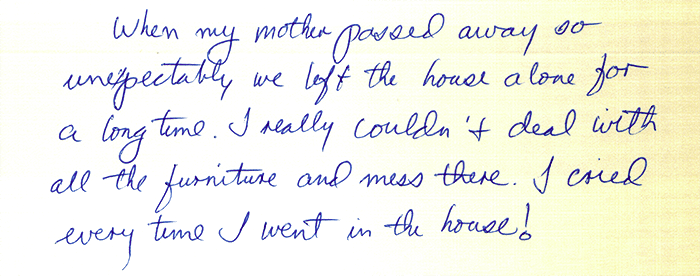 When my mother passed away so
unexpectably we left the house alone for
a long time. I really couldn't deal with
all the furniture and mess there. I cried
every time I went in the house!